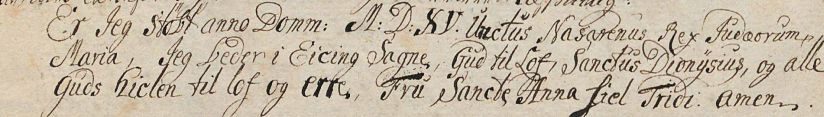 Er Jeg støbt anno Domm: M: D: XV. Unctus Nasarenus Rex Judæorum,
Maria, Jeg beder i Eicing Sagne, Gud til Lof, Sanctus Dionÿsius, og alle
Guds hielen til lof og erre, Fru Sancte Anna siel Tridi: amen.